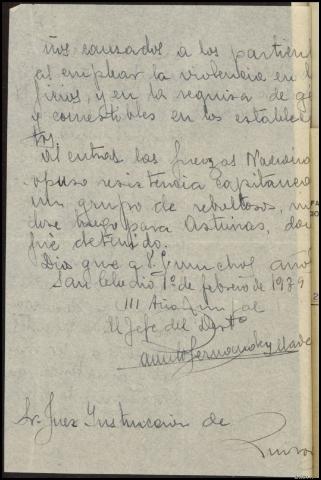 ños causados a los partien
al emplear la violencia en l
ficios, y en la requisa de gé
y comestibles en los establec
tos.
Al entrar las fuerzas Naciona
opuso resistencia capitanea
un grupo de rebeltosos,
dose luego para Asturias, don
fue detenido.
Dios gue a V. muchos años
San Claudio 1º de febrero de 1939
III Año Triunfal
El Jefe del Dest.º
Sr. Juez Instruccion de